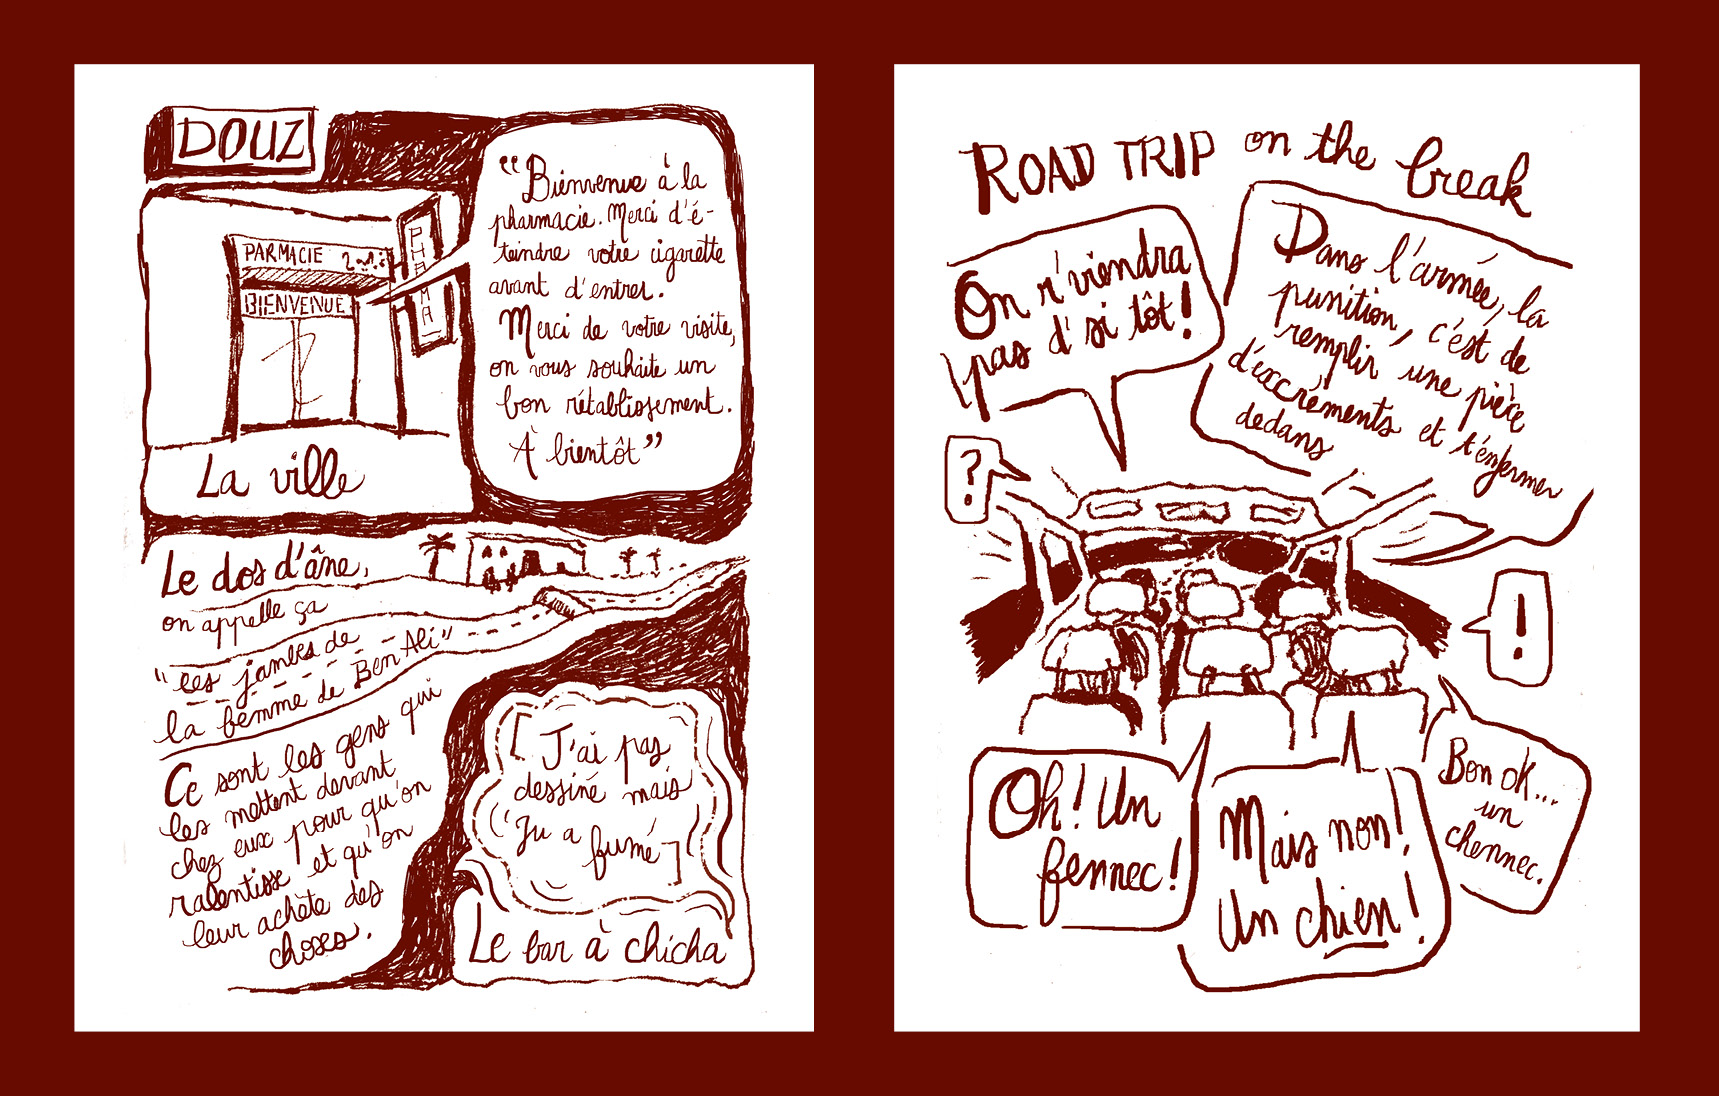 DOUZ
PARMACIE
BIENVENUE
PHARMA
"Bienvenue à la
pharmacie. Merci d'é-
teindre votre cigarette
avant d'entrer.
Merci de votre visite,
on vous souhaite un
bon rétablissement.
À bientôt"
La ville
Le dos d'âne,
on appelle ça
"les jambes de
la femme de Ben Ali"
Ce sont les gens qui
les mettent devant
chez eux pour qu'on
ralentisse et qu'on
leur achète des
choses.
[J'ai pas
dessiné mais
j'y a
fumé]
Le bar à chicha
ROAD TRIP on the break
On r'viendra
pas d'si tôt!
Dans l'armée, la
punition, c'est de
remplir une pièce
d'excréments et t'enfermer
dedans
?
!
Oh! Un
fennec!
Mais non!
Un chien!
Bon ok...
un
chennec.